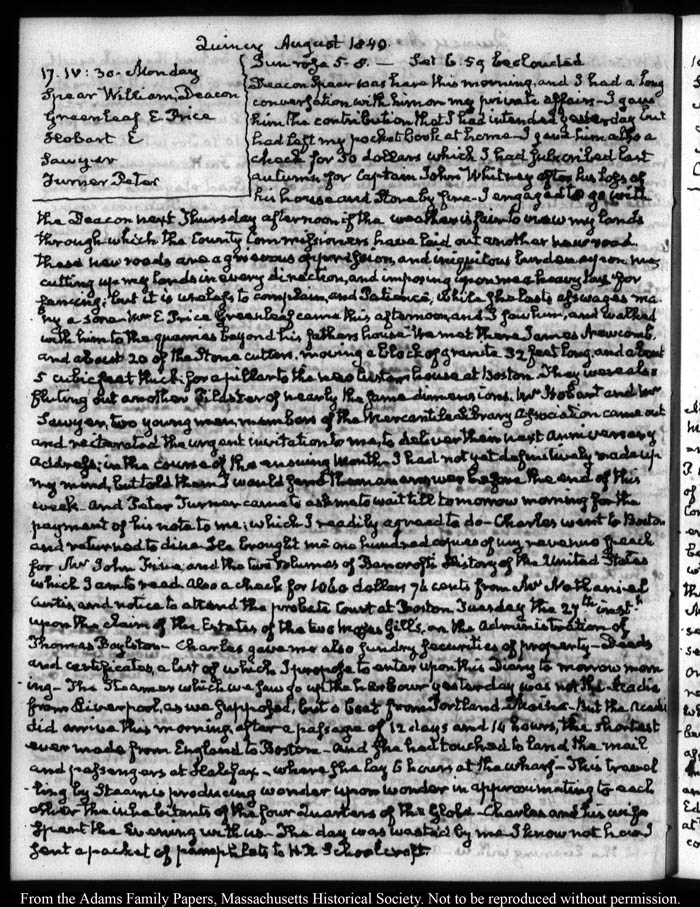 Quincy August 1840.
17. IV: 30. Monday
Spear William, Deacon
Greenleaf E. Price
Hobart E
Sawyer
Turner Peter
Sun rose 5-8. — Set 6.59 Beclouded
Deacon Spear was here this morning, and I had a long
conversation with him on my private affairs—I gave
him the contribution that I had intended yesterday but
had left my pocket book at home—I gave him also a
check for 50 dollars which I had subscribed last
autumn for Captain John Whitney after his loss of
his house and Store by fire—I engaged to go with
the Deacon next Thursday afternoon if the weather is fair to view my lands
through which the County Commissioners have laid out another new road.
These new roads are a grievous oppression, and iniquitous burden upon me,
cutting up my lands in every direction, and imposing upon me a heavy tax for
fencing; but it is useless to complain, and Patience, while she lasts asswages ma-
ny a sore—Mr E. Price Greenleaf came this afternoon, and I saw him, and walked
with him to the quarries beyond his fathers house. We met there James Newcomb,
and about 20 of the Stone cutters, moving a block of granite 32 feet long, and about
5 cubic feet thick, for a pillar to the new Custom house at Boston. They were also
fluting out another Pilaster of nearly the same dimensions. Mr Hobart and Mr
Sawyer, two young men, members of the Mercantile library Association came out
and reiterated the urgent invitation to me, to deliver their next anniversary
Address; in the course of the ensuing Month. I had not yet definitively made up
my mind, but told them I would send them an answer before the end of this
week. And Peter Turner came to ask me to wait till to morrow morning for the
payment of his note to me; which I readily agreed to do—Charles went to Boston
and returned to dine. He brought me one hundred copies of my revenue speech
for Mr John and the two volumes of Bancroft's History of the United States
which I am to read. Also a check for 1060 dollars 74 cents from Mr Nathaniel
Curtis, and notice to attend the probate Court at Boston Tuesday the 27th inst.
upon the claim of the Estates of the two Moses Gills, on the Administration of
Thomas Boylston—Charles gave me also sundry securities of property—Deeds
and certificates, a list of which I propose to enter upon this Diary to morrow morn-
ing—The Steamer which we saw go up the harbour yesterday was not the Acadia
from Liverpool, as we supposed, but a boat from Portland Maine. But the Acadia
did arrive this morning, after a passage of 12 days and 14 hours, the shortest
ever made from England to Boston—And she had touched to land the mail
and passengers at Halifax—where she lay 6 hours at the wharf—This travel-
ling by Steam is producing wonder upon wonder in approximating to each
other the inhabitants of the four Quarters of the Globe—Charles and his wife
spent the Evening with us—The day was wasted by me I know not how I
sent a packet of pamphlets to H. R. Schoolcraft.
From the Adams Family Papers, Massachusetts Historical Society. Not to be reproduced without permission.